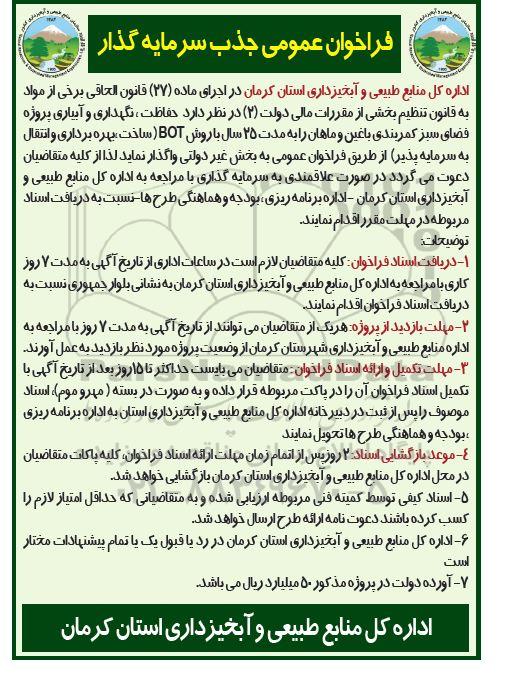 فراخوان عمومی جذب سرمایه گذار
اداره کل منابع طبیعی و آبخیزداری استان کرمان در اجرای ماده (۲۷) قانون الحاقی برخی از مواد
به قانون تنظیم بخشی از مقررات مالی دولت (۲) در نظر دارد حفاظت ، نگهداری و آبیاری پروژه
فضای سبز کمربندی باغین و ماهان را به مدت ۲۵ سال با روش BOT (ساخت،بهره برداری و انتقال
به سرمایه پذیر) از طریق فراخوان عمومی به بخش غیر دولتی واگذار نماید لذا از کلیه متقاضیان
دعوت می گردد در صورت علاقمندی به سرمایه گذاری با مراجعه به اداره کل منابع طبیعی و
آبخیزداری استان کرمان - اداره برنامه ریزی ، بودجه و هماهنگی طرح ها-نسبت به دریافت اسناد
مربوطه در مهلت مقرر اقدام نمایند.
توضیحات:
۱- دریافت اسناد فراخوان : کلیه متقاضیان لازم است در ساعات اداری از تاریخ آگهی به مدت ۷ روز
کاری با مراجعه به اداره کل منابع طبیعی و آبخیزداری استان کرمان به نشانی بلوار جمهوری نسبت به
دریافت اسناد فراخوان اقدام نمایند.
۲- مهلت بازدید از پروژه: هریک از متقاضیان می توانند از تاریخ آگهی به مدت ۷ روز با مراجعه به
اداره منابع طبیعی و آبخیزداری شهرستان کرمان از وضعیت پروژه مورد نظر بازدید به عمل آورند.
۳- مهلت تکمیل و ارائه اسناد فراخوان : متقاضیان می بایست حداکثر تا ۱۵روز بعد از تاریخ آگهی با
تکمیل اسناد فراخوان آن را در پاکت مربوطه قرار داده و به صورت در بسته ( مهر و موم)، اسناد
موصوف را پس از ثبت در دبیرخانه اداره کل منابع طبیعی و آبخیزداری استان به اداره برنامه ریزی
، بودجه و هماهنگی طرح ها تحویل نمایند
۴- موعد بازگشایی اسناد: ۲ روز پس از اتمام زمان مهلت ارائه اسناد فراخوان، کلیه پاکات متقاضیان
در محل اداره کل منابع طبیعی و آبخیزداری استان کرمان بازگشایی خواهد شد.
۵- اسناد کیفی توسط کمیته فنی مربوطه ارزیابی شده و به متقاضیانی که حداقل امتیاز لازم را
کسب کرده باشند دعوت نامه ارائه طرح ارسال خواهد شد.
۶- اداره کل منابع طبیعی و آبخیزداری استان کرمان در رد یا قبول یک یا تمام پیشنهادات مختار
است
۷- آورده دولت در پروژه مذکور ۵۰ میلیارد ریال می باشد.
اداره کل منابع طبیعی و آبخیزداری استان کرمان